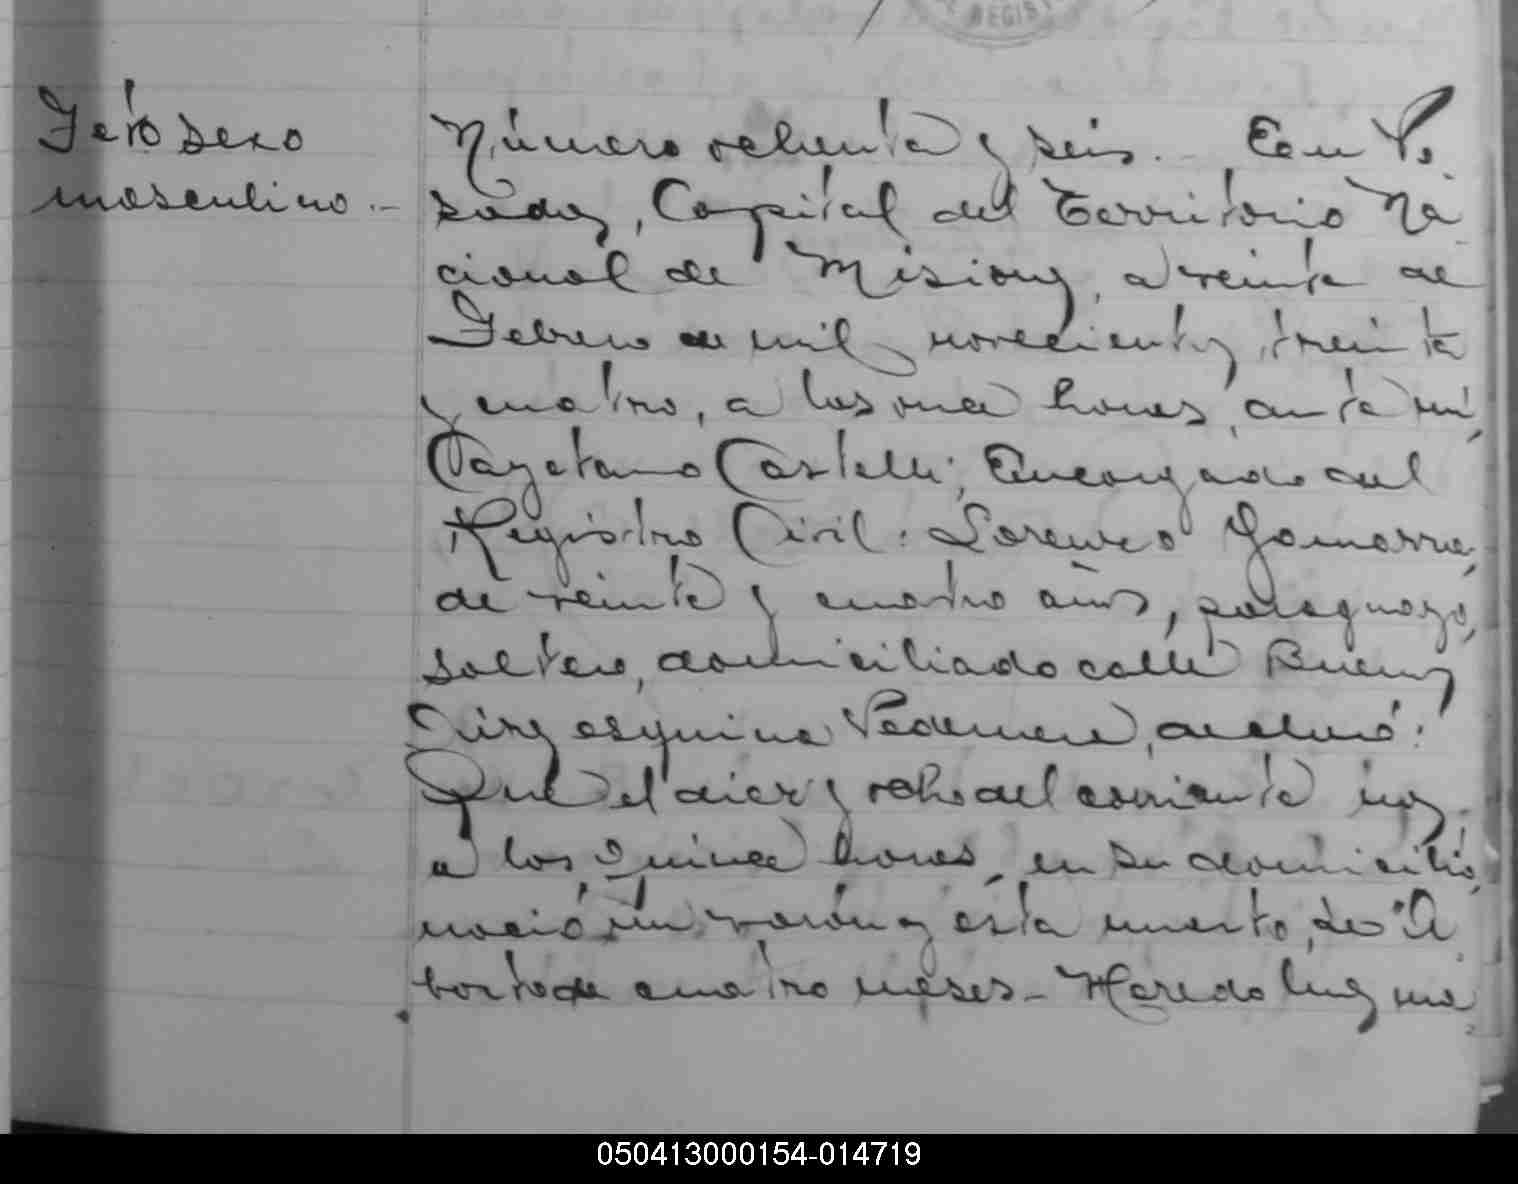 REGIST
Feto sexo
masculino.-
Número ochenta y seis.- En Po
sadas, Capital del Territorio Na
cional de Misiones, a veinte de
Febrero de mil novecientos treinta
y cuatro, a las once horas, ante mi,
Cayetano Castelli, Encargado del
Registro Civil: Lorenzo Gamarra,
de veinte y cuatro años, paraguayo,
soltero, domiciliado calle Buenos
Aires esquina declaró:
Que el diez y ocho del corriente mes
a las quince horas, en su domicilio,
nació un varón y esta muerto, de A
borto de cuatro meses-
050413000154-014719